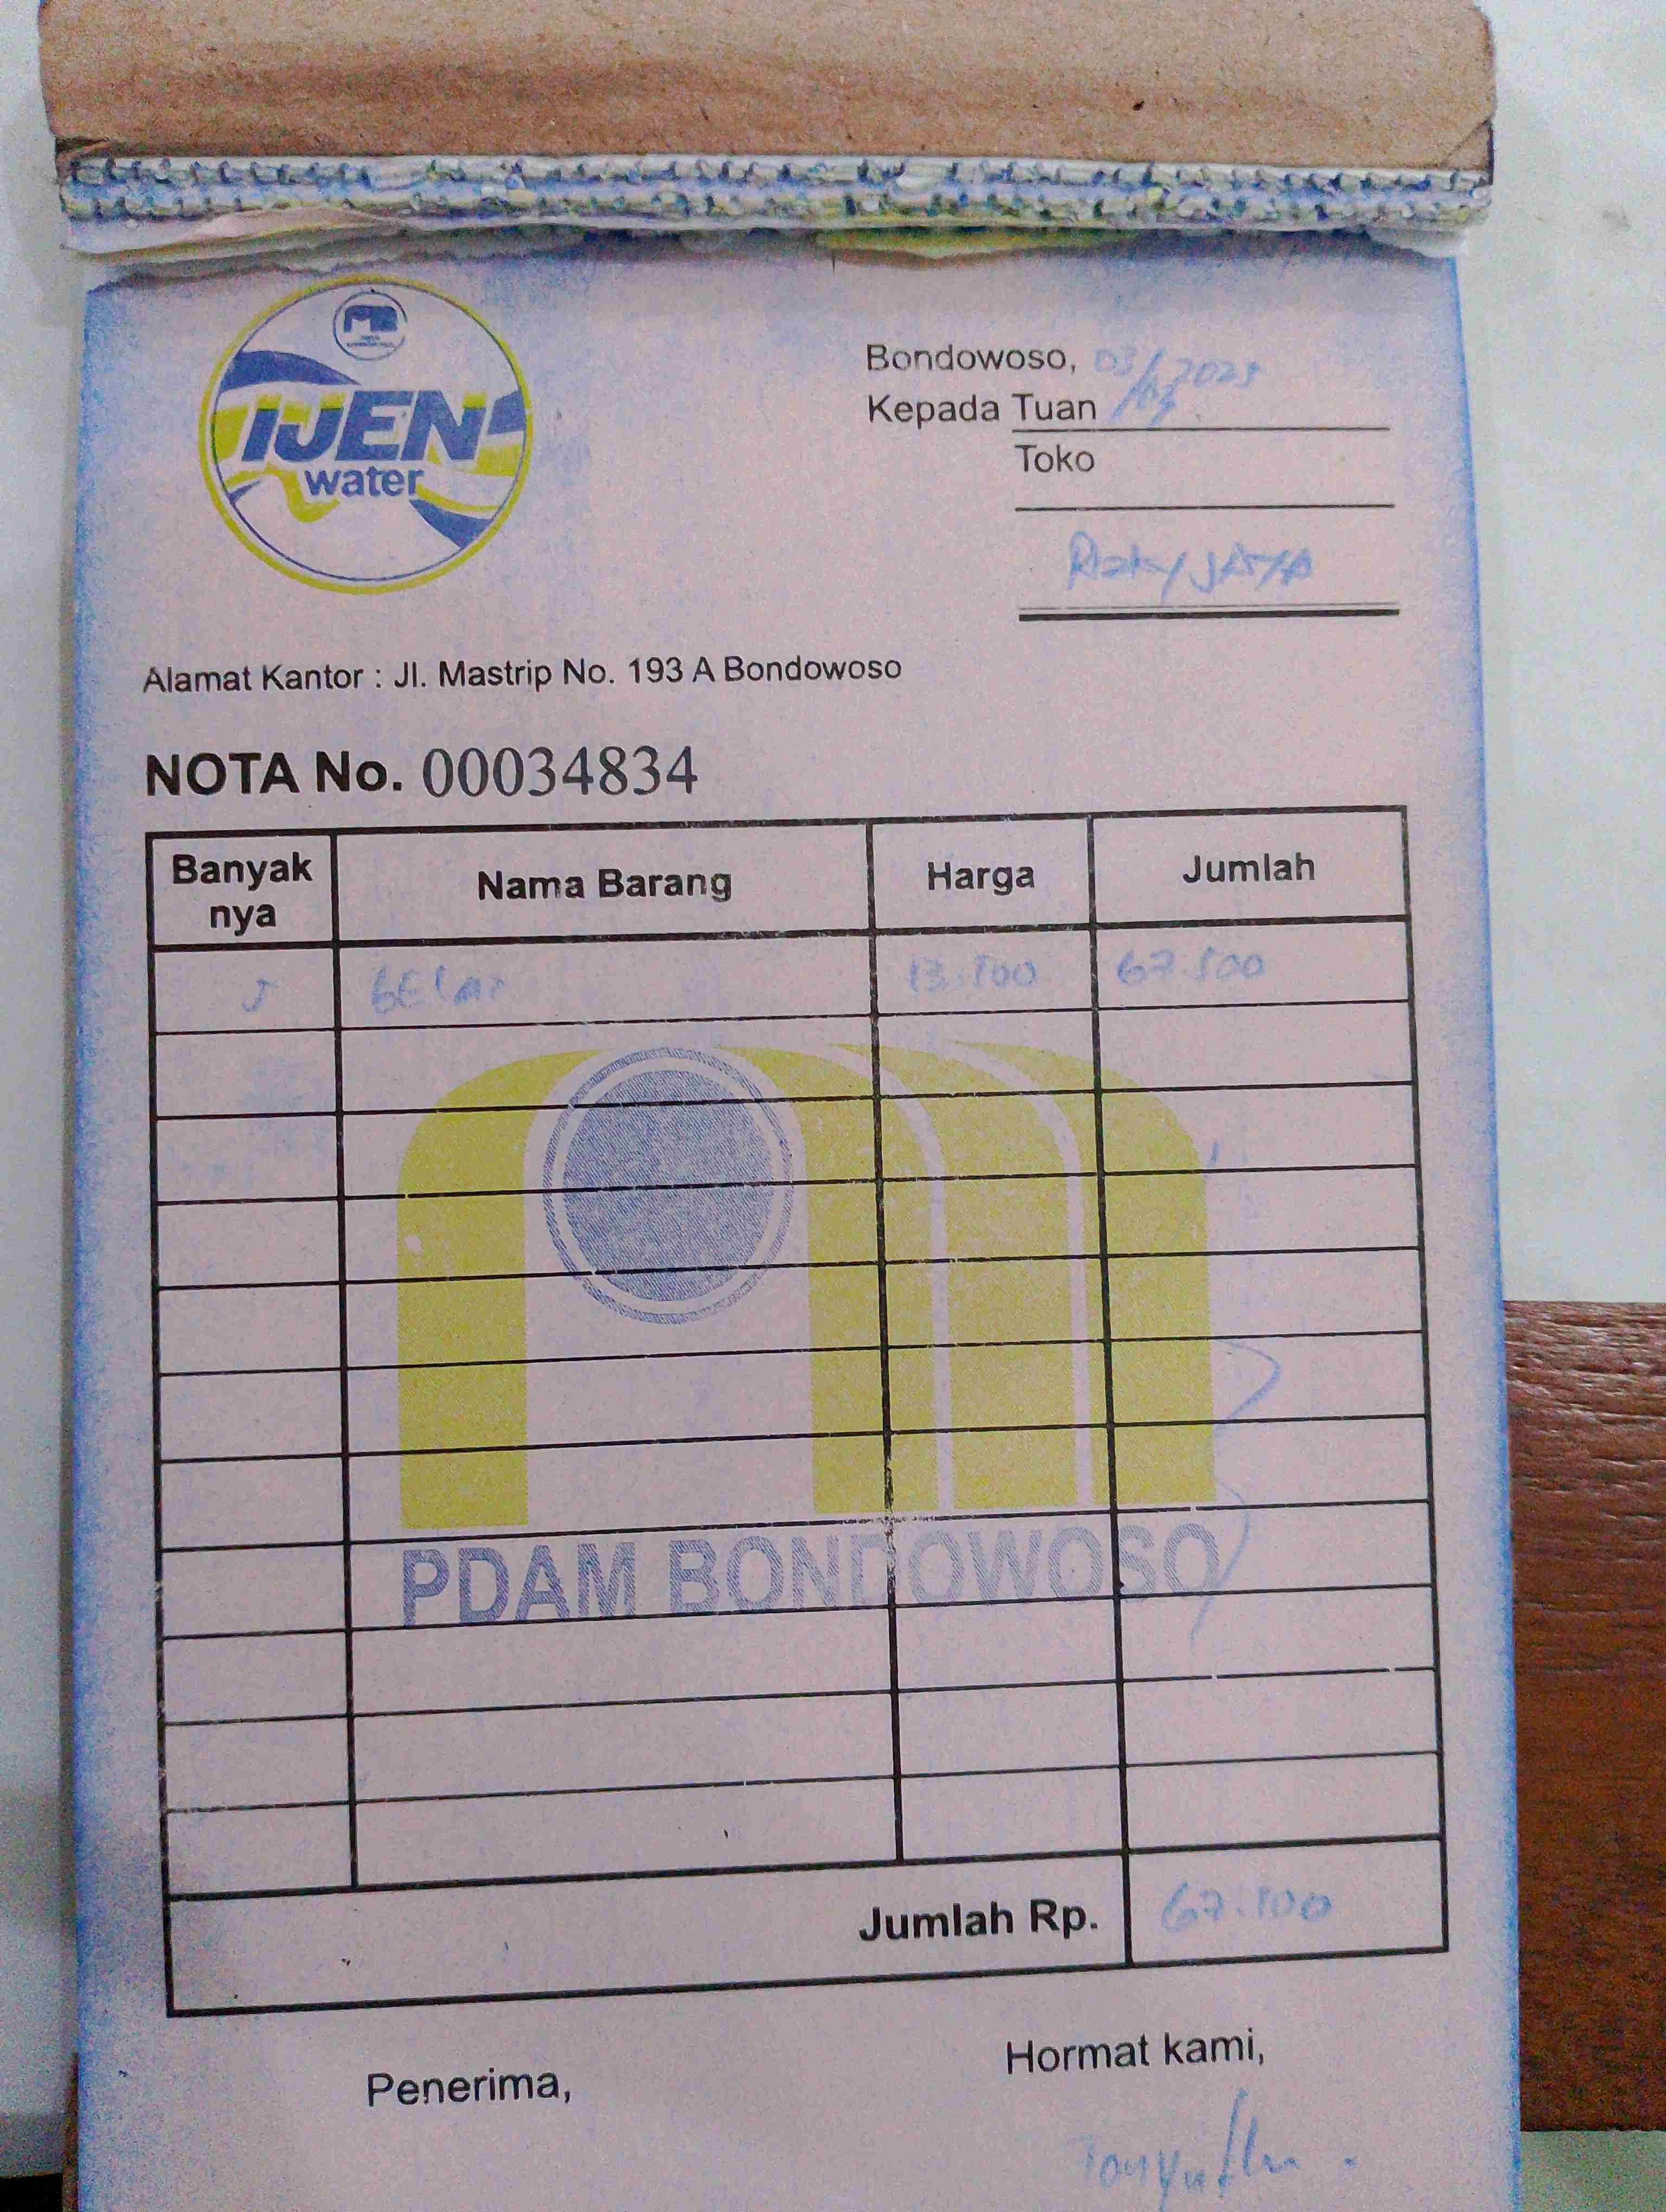 IJEN
water
Bondowoso, 03/ 2025
Kepada Tuan
Toko
Rizky JAYA
Alamat Kantor : Jl. Mastrip No. 193 A Bondowoso
NOTA No. 00034834
Banyak nya Nama Barang Harga Jumlah
5 GELAS 13.500 67.500
PDAM BONDOWOSO
Jumlah Rp. 67.500
Hormat kami,
Penerima,